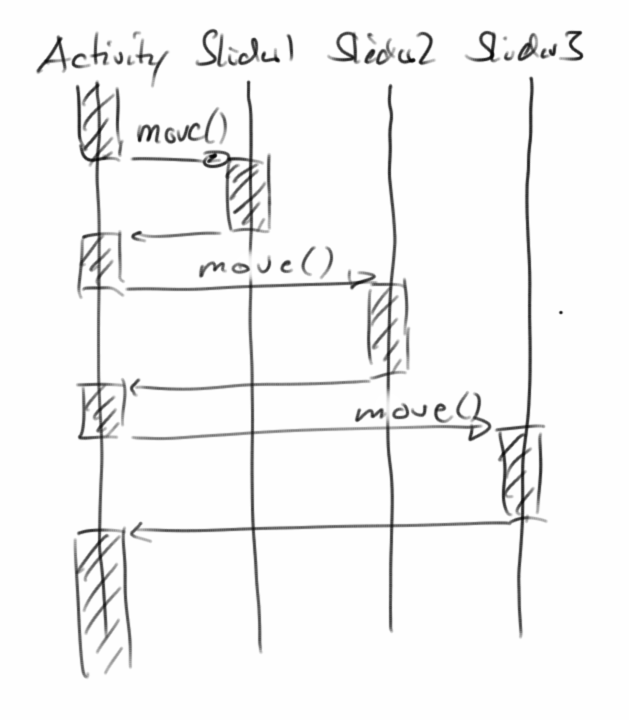 Activity Slider1 Slider2 Slider3
move()
move()
move()